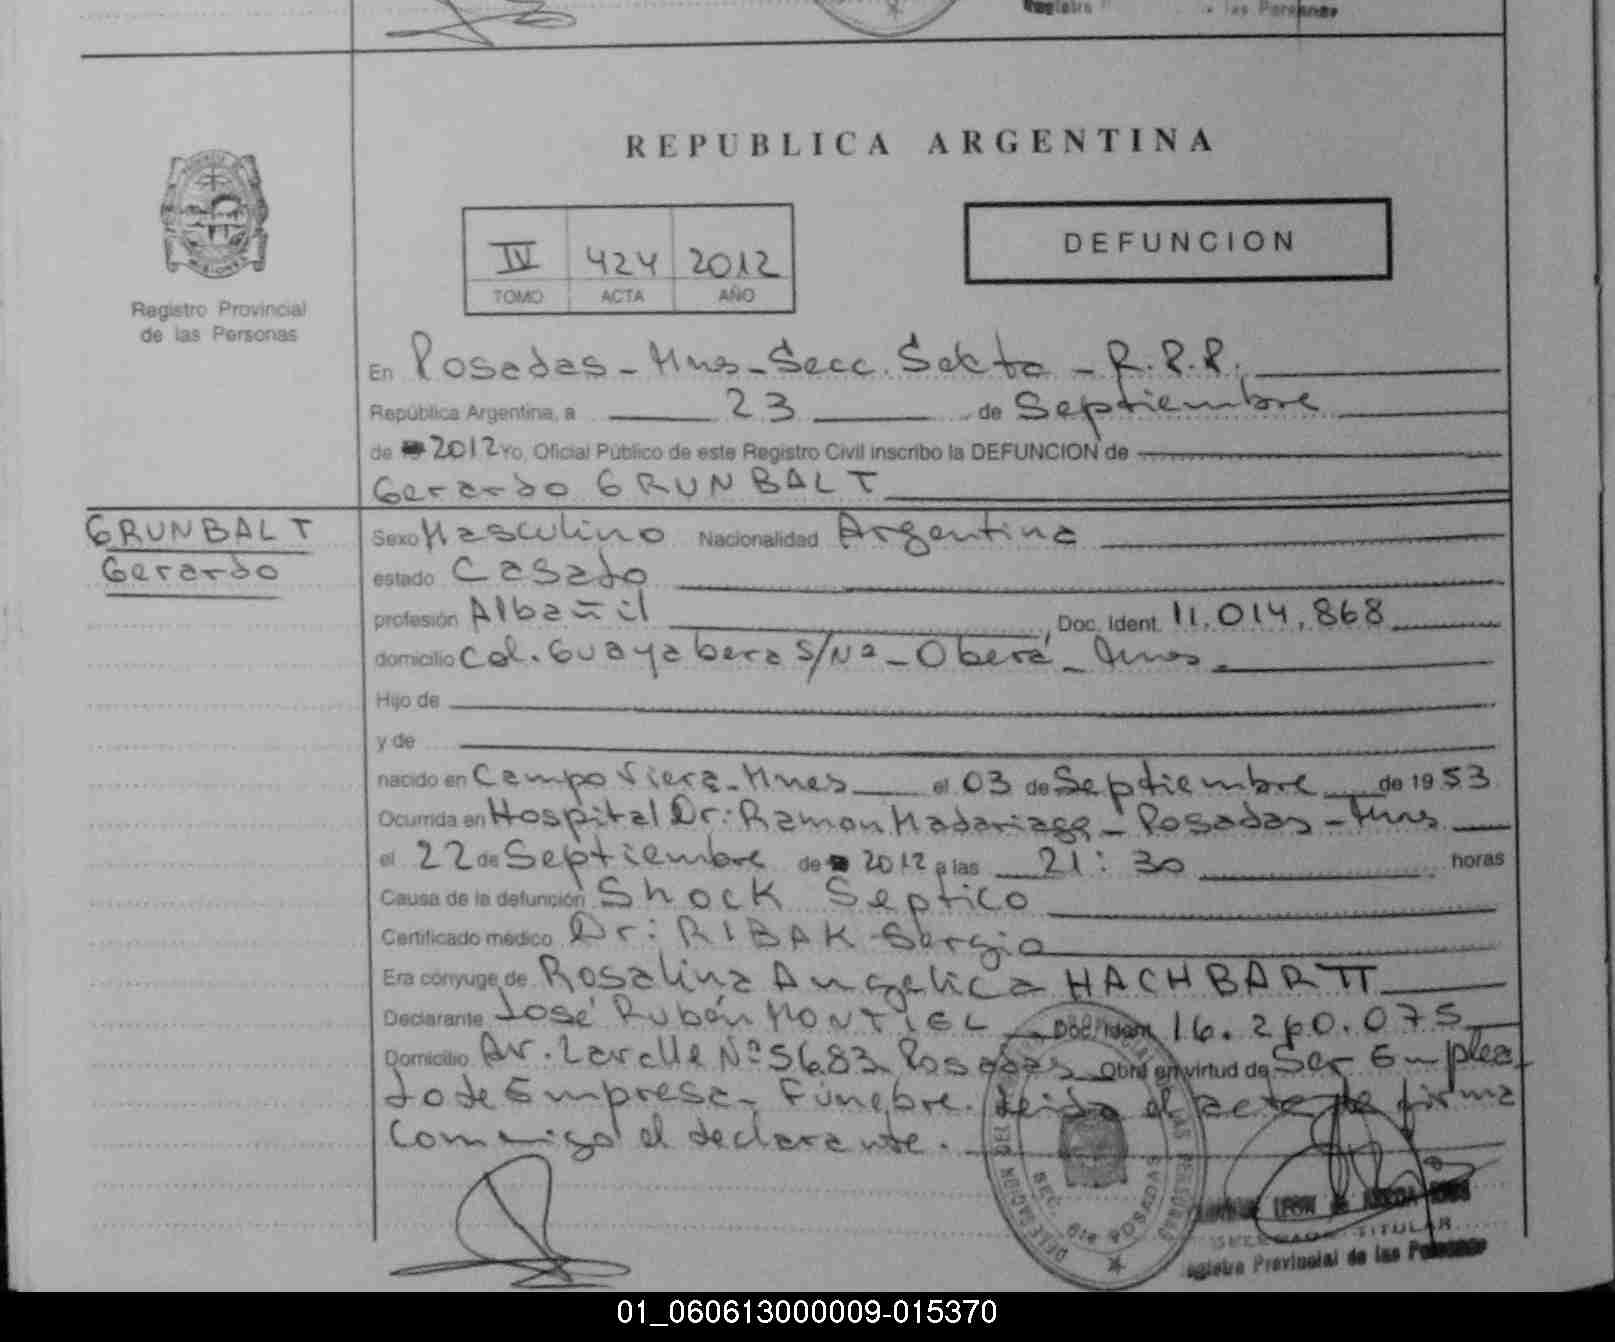 Registro de las Personas
REPUBLICA ARGENTINA
MISIONES
Registro Provincial
de las Personas
IV 424 2012
TOMO ACTA AÑO
DEFUNCION
En Posadas - Mnes - Secc. Sexta - R.P.P.
República Argentina, a 23 de Septiembre
de 2012 Yo, Oficial Público de este Registro Civil inscribo la DEFUNCION de
Gerardo GRUNBALT
GRUNBALT
Gerardo
Sexo Masculino Nacionalidad Argentina
estado Casado
profesión Albañil, Doc. Ident. 11.014.868
domicilio Col. Guayabera S/Nº - Oberá - Mnes.
Hijo de
y de
nacido en Campo Viera - Mnes el 03 de Septiembre de 1953
Ocurrida en Hospital Dr: Ramon Madariaga - Posadas - Mnes
el 22 de Septiembre de 2012 a las 21:30 horas
Causa de la defunción Shock Septico
Certificado médico Dr: RIBAK Sergio
Era cónyuge de Rosalina Angelica HACHBARTT
Declarante José Rubén MONTIEL Doc. Ident. 16.290.075
Domicilio Av. Lavalle Nº 5683 Posadas Obra en virtud de Ser Emplea
do de Empresa - Fúnebre. Leida el acta la firma
conmigo el declarante.
DELEGACION DEL DE LAS PERSONAS
SEC. 6ta POSADAS
LEON de
TITULAR
Registro Provincial de las Personas
01_060613000009-015370